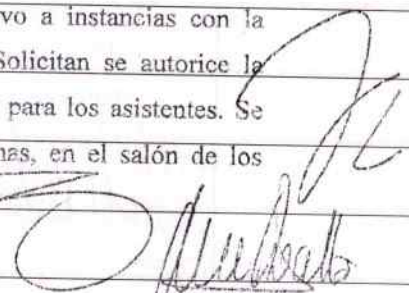 vo a instancias con la
Solicitan se autorice la
para los asistentes. Se
nas, en el salón de los